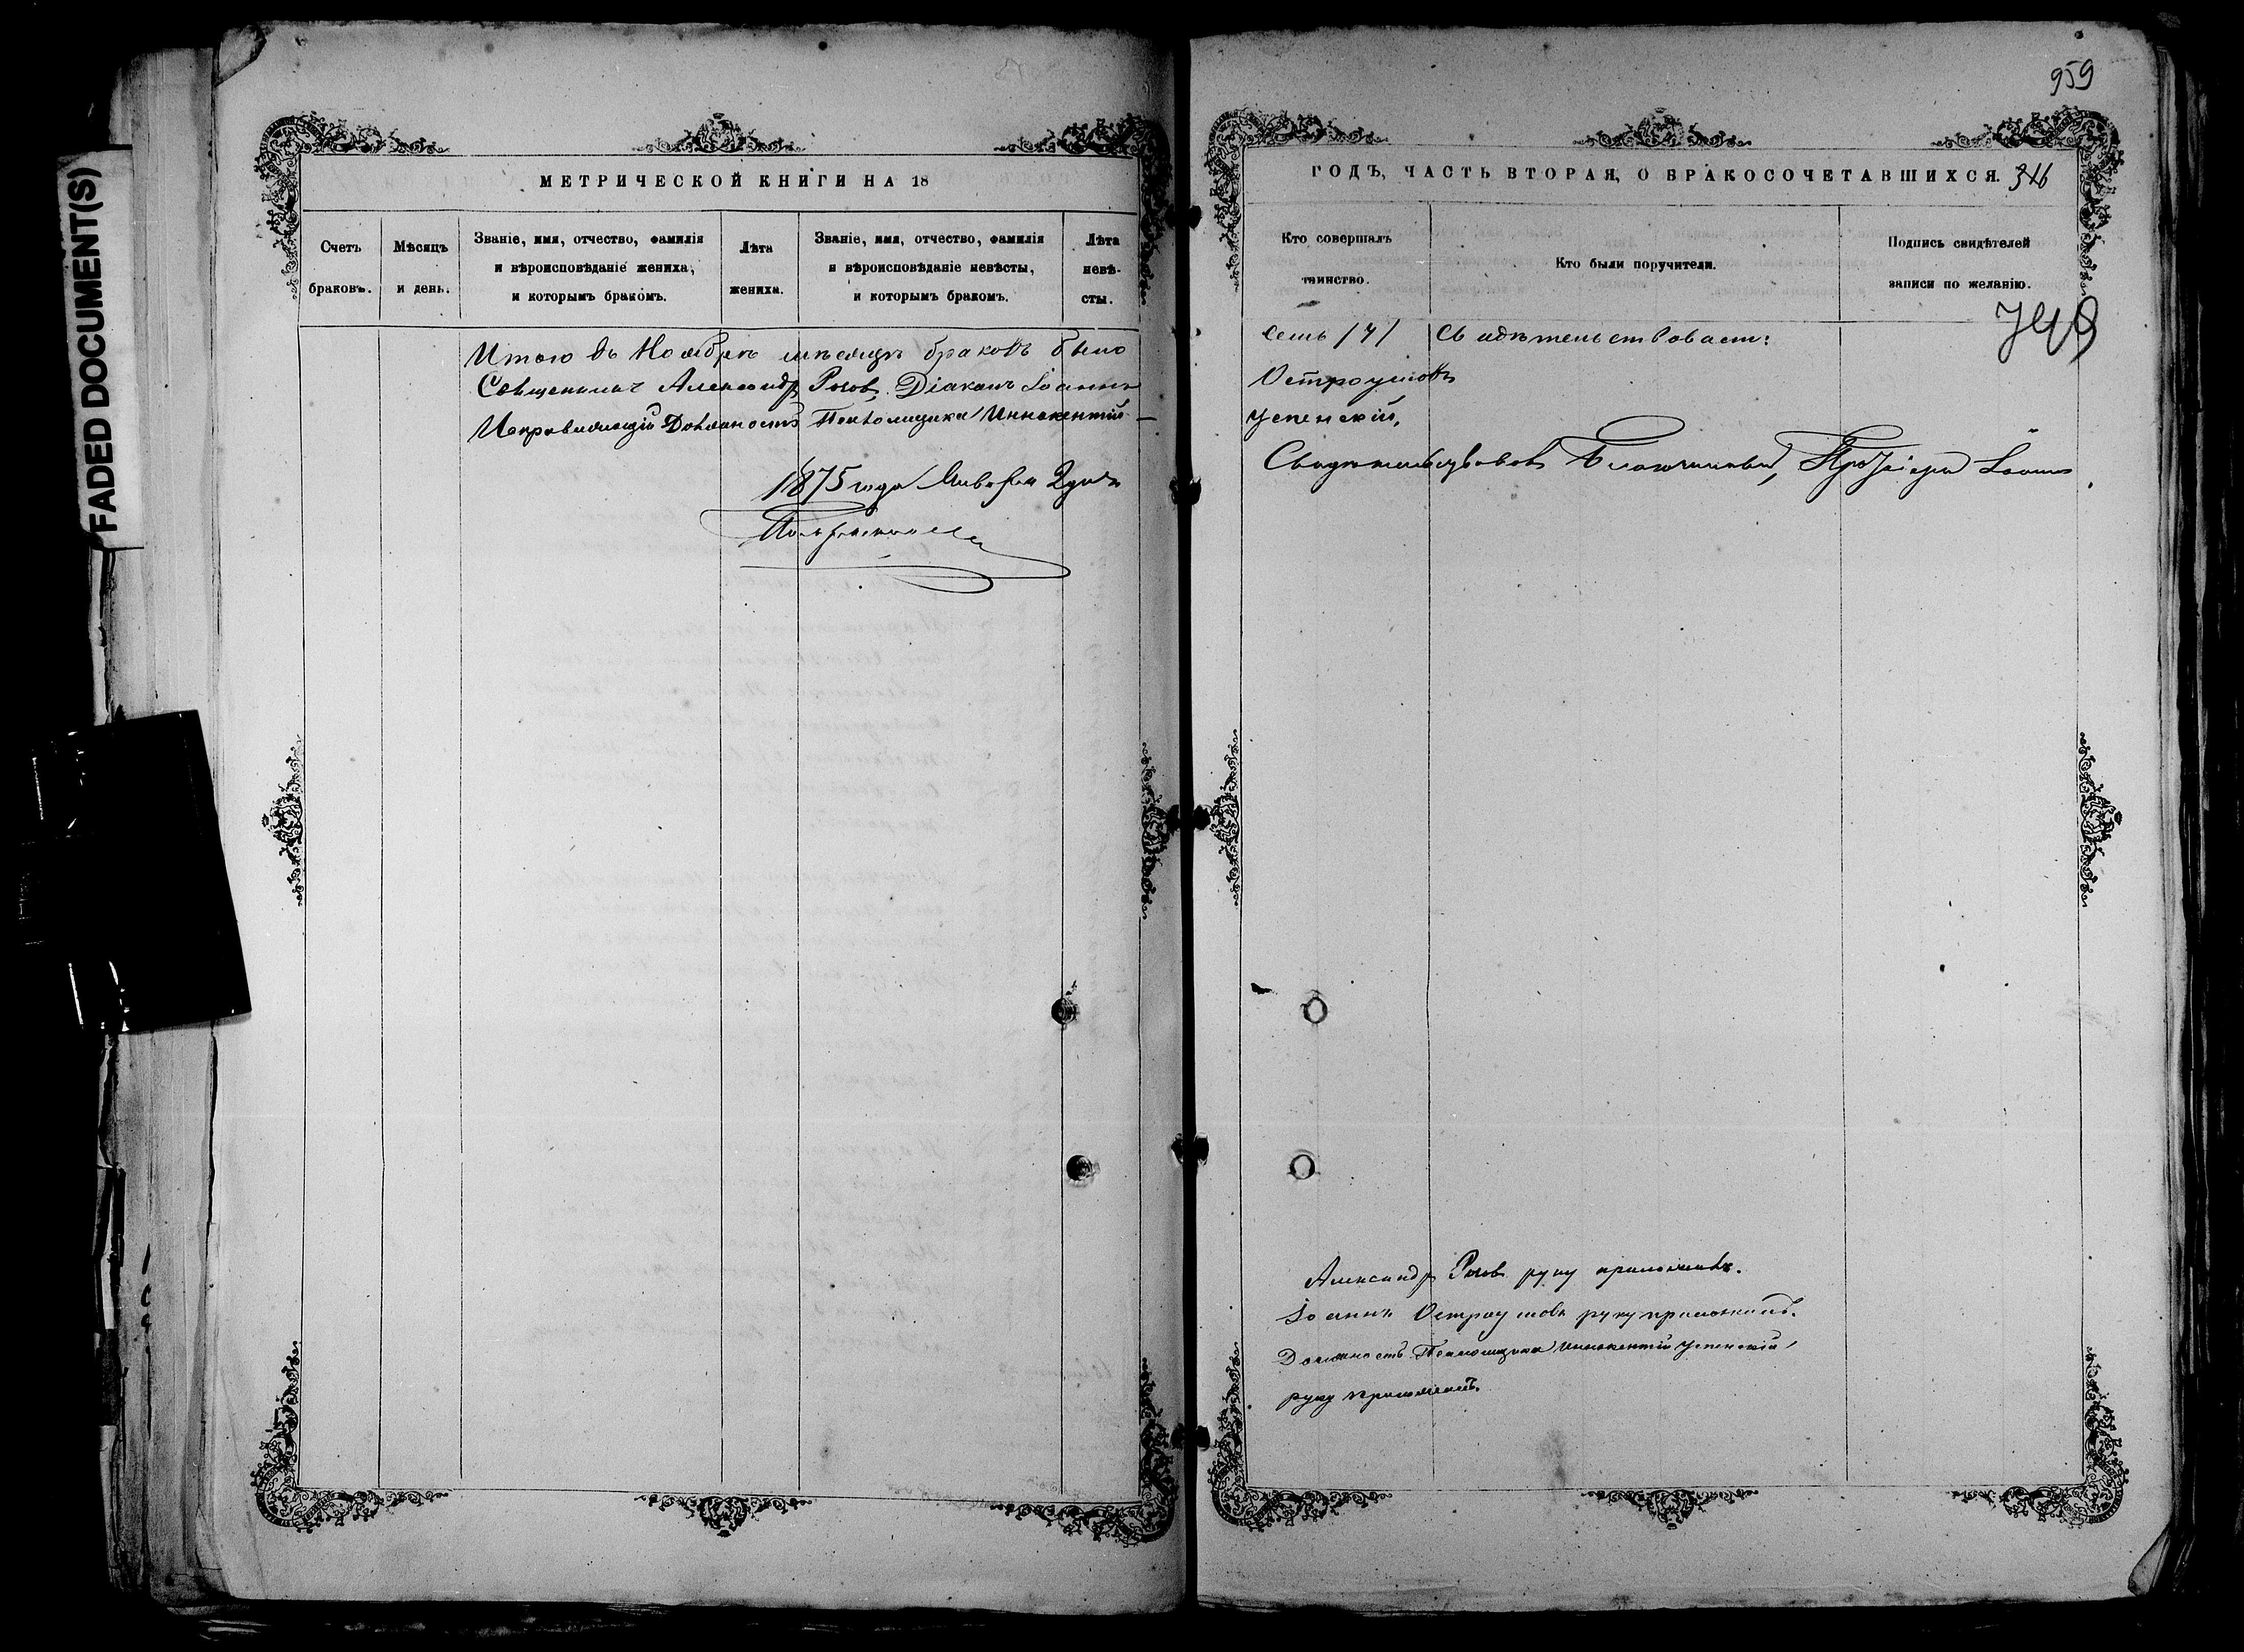 FADED DOCUMENT(S)
959
МЕТРИЧЕСКОЙ КНИГИ НА 18
ГОДЪ, ЧАСТЬ ВТОРАЯ, О БРАКОСОЧЕТАВШИХСЯ.
Счетъ браковъ.
Мѣсяцъ и день.
Званіе, имя, отчество, фамилія и вѣроисповѣданіе жениха, и которымъ бракомъ.
Лѣта жениха.
Званіе, имя, отчество, фамилія и вѣроисповѣданіе невѣсты, и которымъ бракомъ.
Лѣта невѣ-
сты.
Кто совершалъ таинство.
Кто были поручители.
Подпись свидѣтелей записи по желанію.
Итого въ Ноябрѣ мѣсяцѣ браковъ было семь /7/ Свидѣтельствоваст:
Священникъ Александр Діаконъ Іоаннъ Остроумовъ
Исправляющій Должность Псаломщика Иннокентій Успенскій,
1875 года Января 2 дня Свидѣтельствовалъ Протоіерей Іоаннъ
Александр руку приложилъ.
Іоаннъ Остроумовъ руку приложилъ.
Должность Псаломщика Иннокентій Успенскій
руку приложилъ.